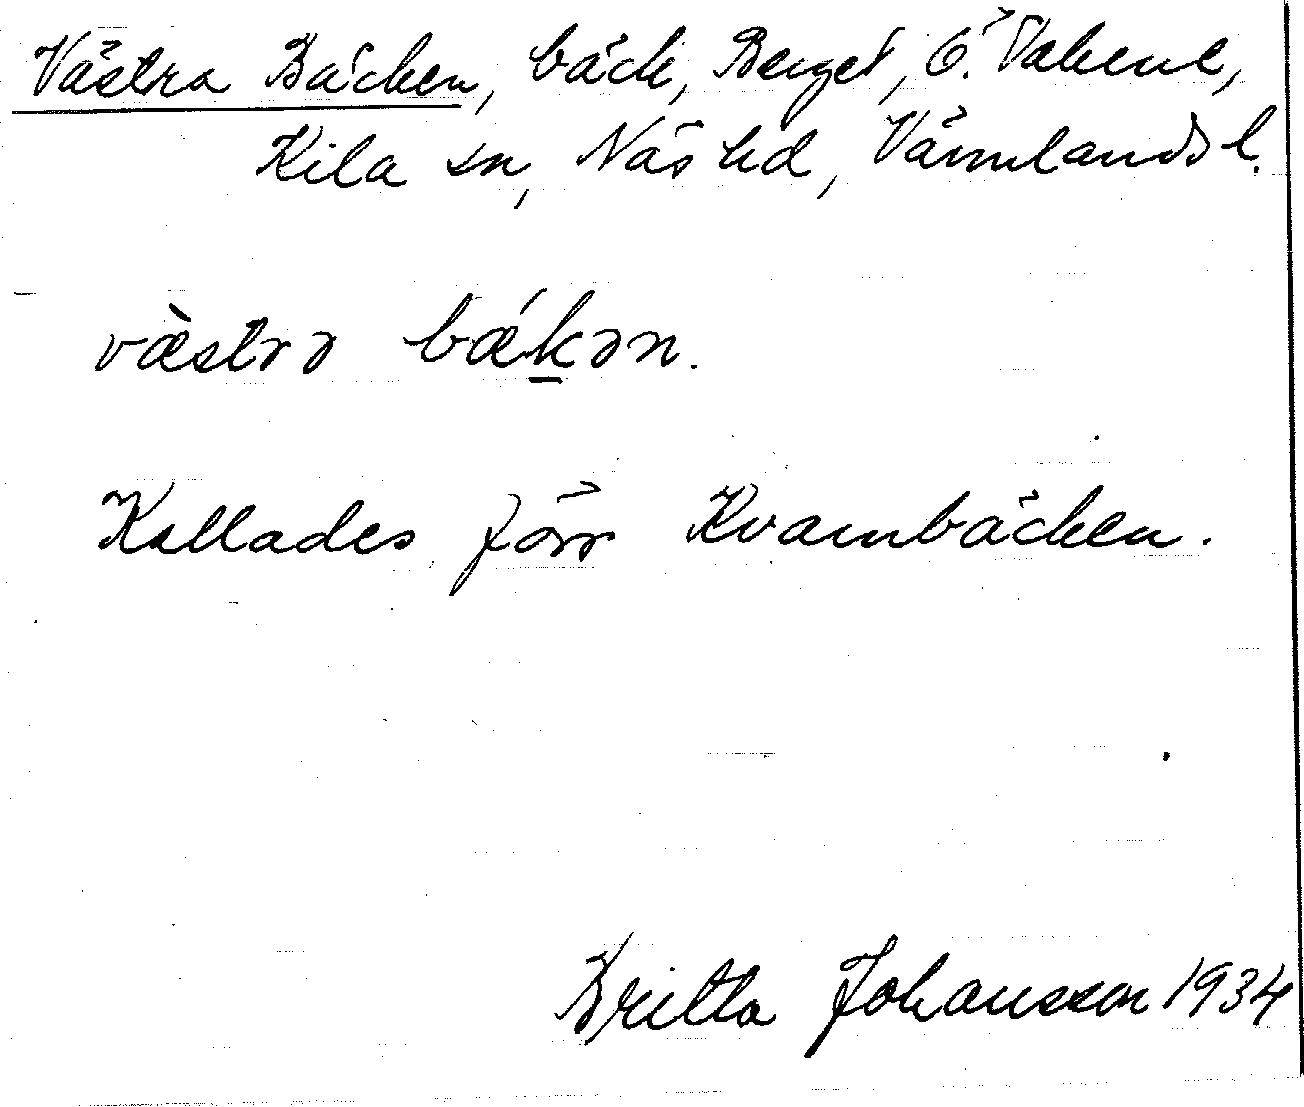 Västra Bäcken, bäck, Berget, Ö. Takene,
Kila sn, Näs hd, Värmlands l.
væ̀strə bǽkən.
Kallades förr Kvarnbäcken.
Britta Johansson 1934